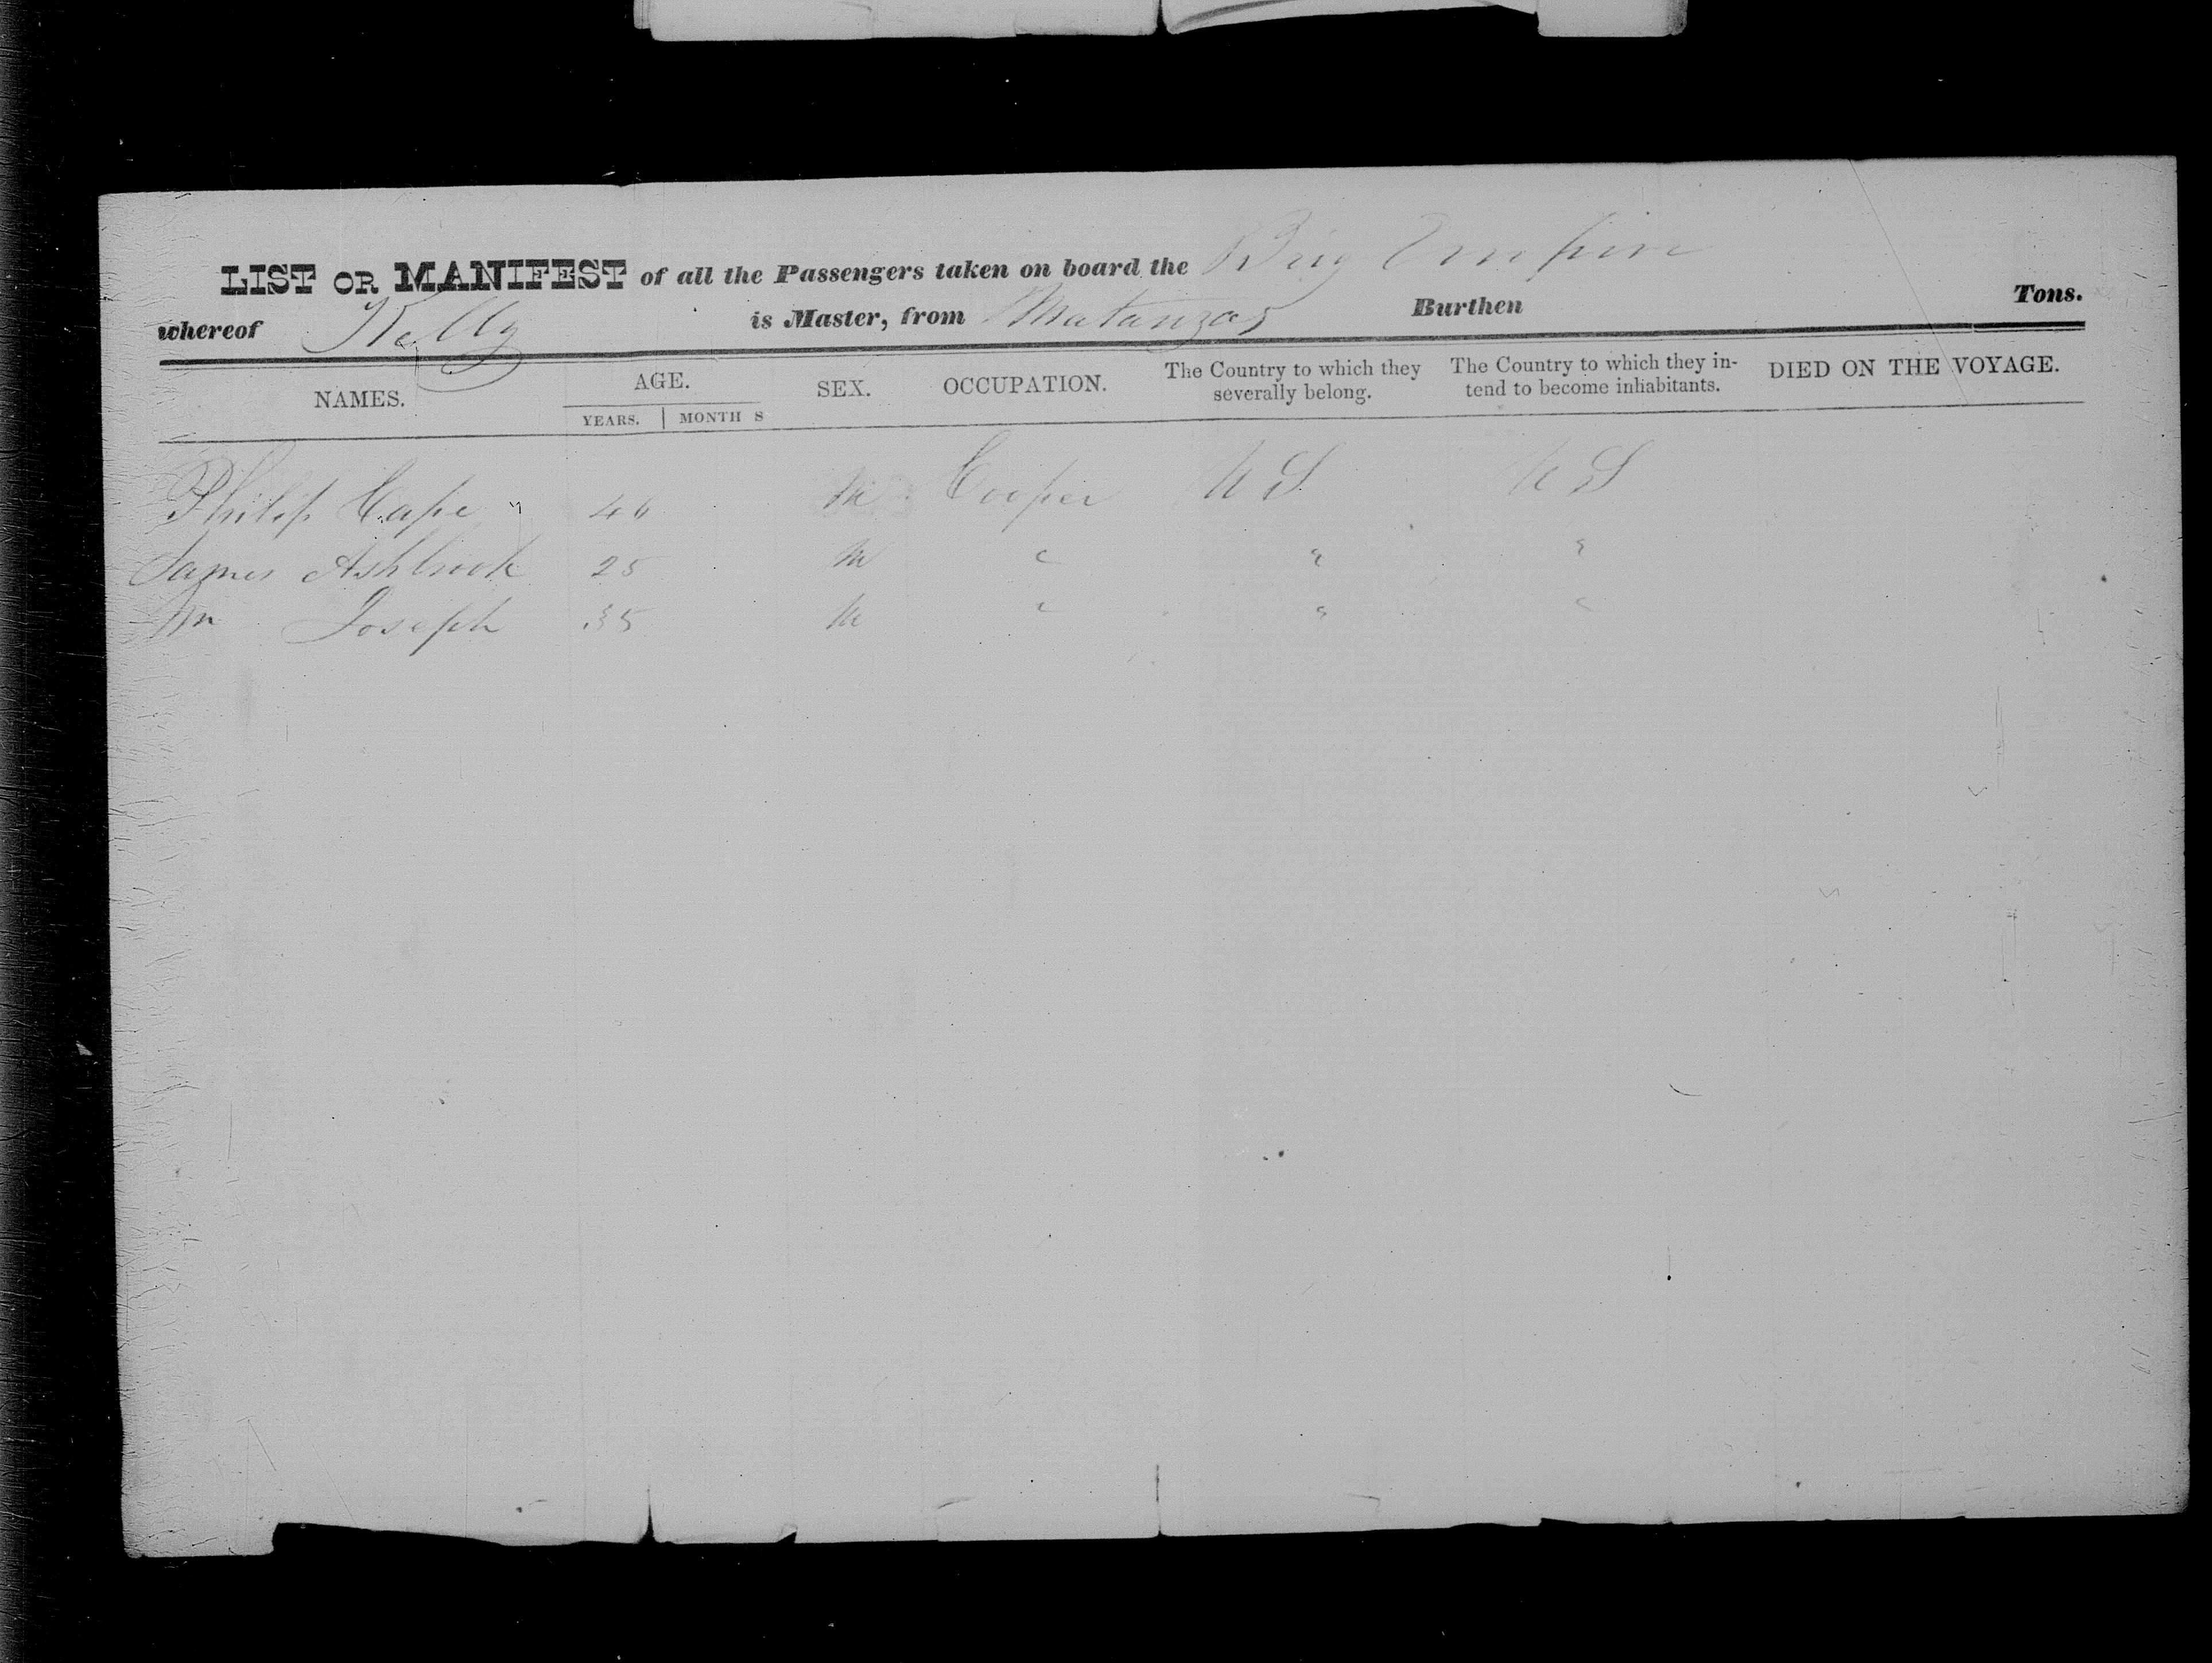 LIST OR MANIFEST of all the Passengers taken on board the Brig Empire
whereof Kelly is Master, from Matanzas Burthen Tons.
NAMES. AGE. SEX. OCCUPATION. The Country to which they severally belong. The Country to which they in-tend to become inhabitants. DIED ON THE VOYAGE.
YEARS. MONTH S
Philip Cape 46 M Cooper U S U S
James Ashbrook 25 M " " "
Joseph 35 M " " "